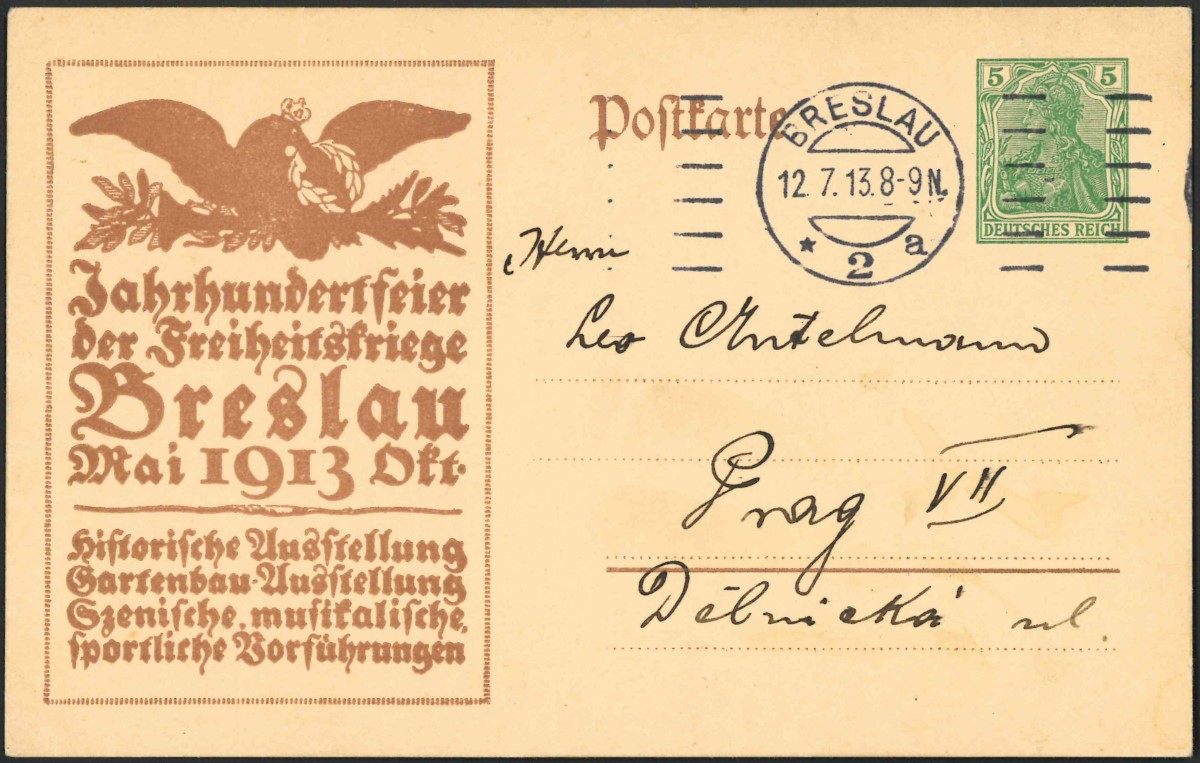 Jahrhundertfeier
der Freiheitskriege
Breslau
Mai 1913 Okt.
Historische Ausstellung
Gartenbau-Ausstellung
Szenische, musikalische,
sportliche Vorführungen
Postkarte
BRESLAU
12.7.13.8-9N.
* 2 a
5 5
DEUTSCHES REICH
Herrn
Leo Antelmann
Prag VII
Dělnická ul.